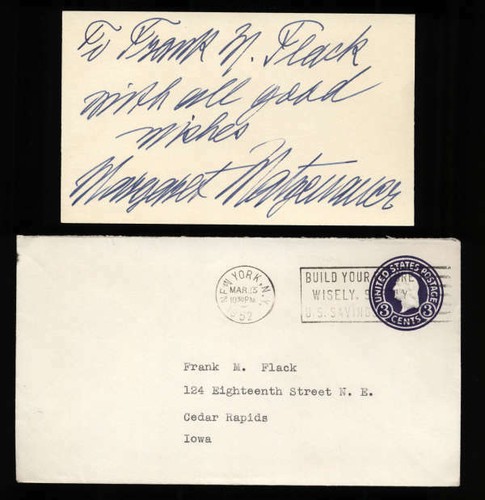 To Frank M. Flack
with all good
wishes
Margaret Matzenauer
NEW YORK, N.Y.
MAR 13
10 PM
BUILD YOUR
WISELY.
U.S. SAVING
UNITED STATES POSTAGE
3 CENTS 3
Frank M. Flack
124 Eighteenth Street N. E.
Cedar Rapids
Iowa